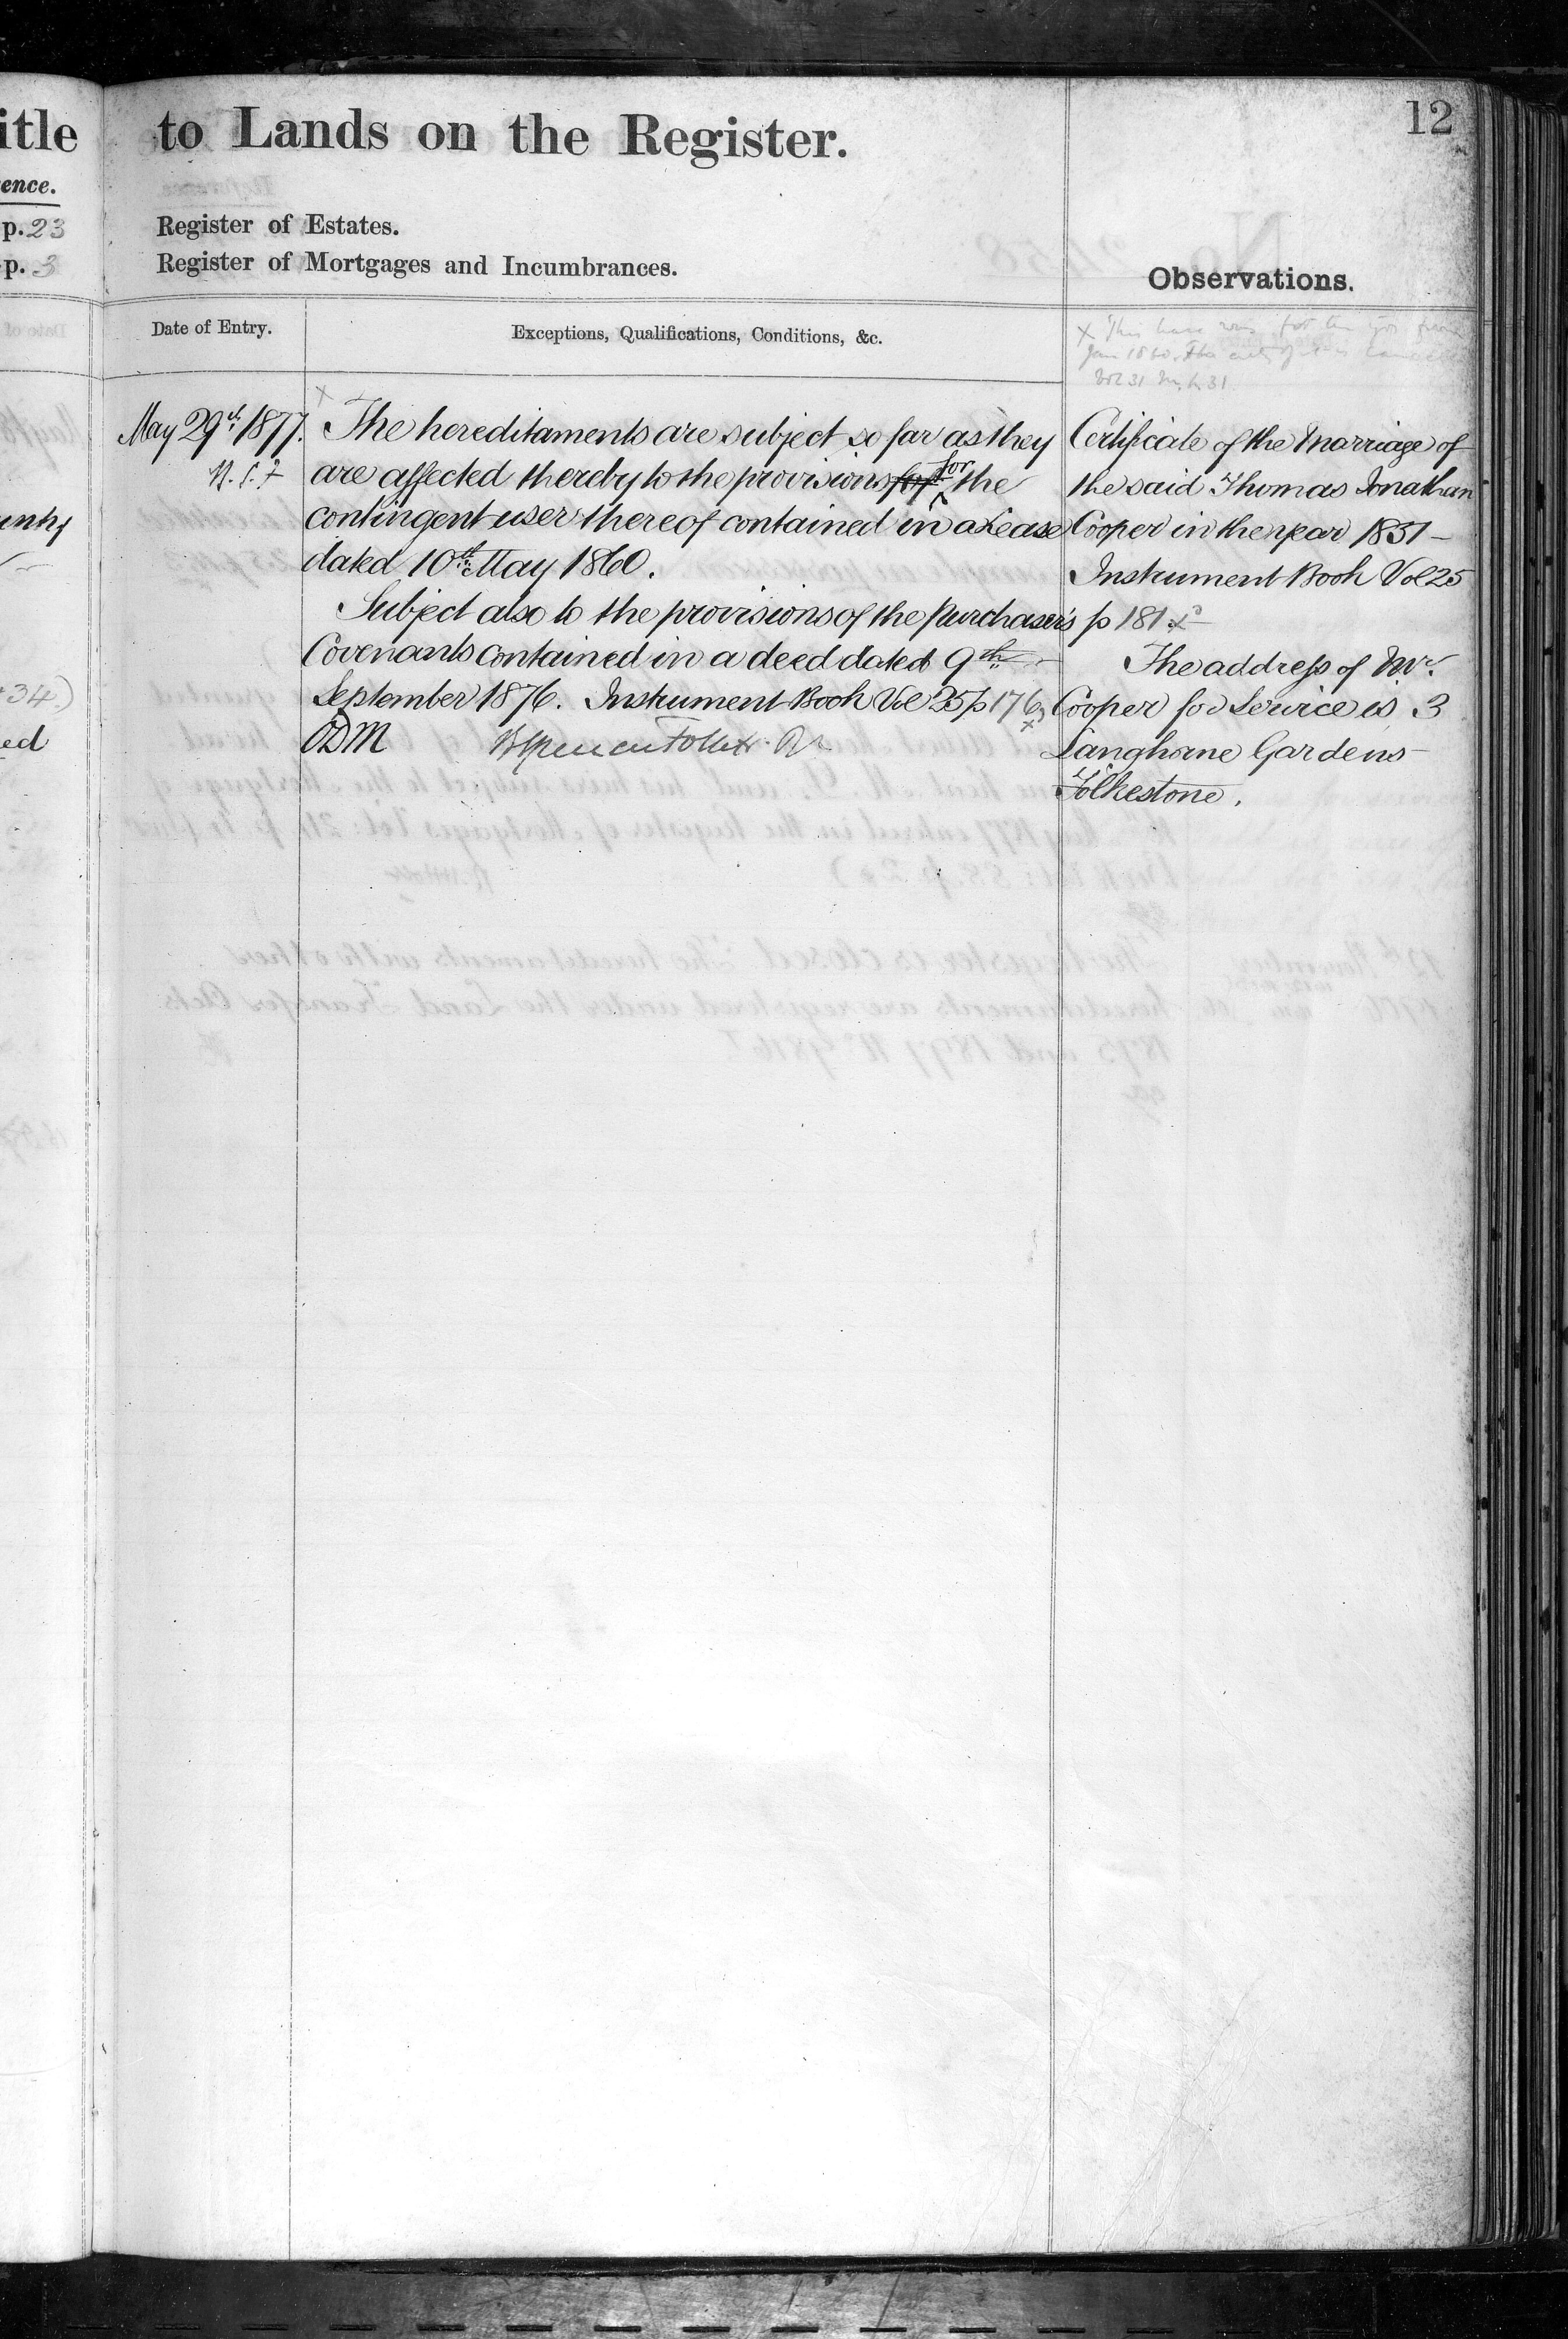 12
to Lands on the Register.
ence.
p. 23
p. 3
Register of Estates.
Register of Mortgages and Incumbrances.
Observations.
Date of Entry.
Exceptions, Qualifications, Conditions, &c.
May 29th 1877.
The hereditaments are subject so far as they
are affected thereby to the provisions for the
contingent user thereof contained in a Lease
dated 10th May 1860.
Subject also to the provisions of the Purchaser's
Covenants contained in a deed dated 9th
September 1876. Instrument Book Vol 25 p 176
ODM
× This
Jan 1860
Vol 31
Certificate of the Marriage of
the said Thomas Jonathan
Cooper in the year 1831 –
Instrument Book Vol 25
p 181
The address of Mr.
Cooper for Service is 3
Langhorne Gardens
Folkestone.
34)
ed